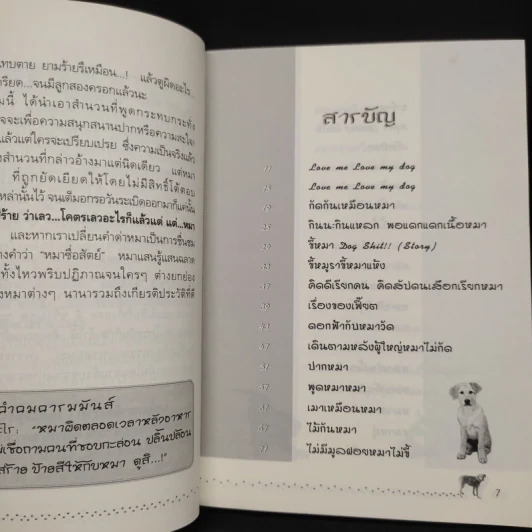 ทบตาย ยามร้ายรีเหมือน...! แล้วดูผิดอะไร...
รียด...จนมีลูกสองครอกแล้วนะ
มนี้ ได้นำเอาสำนวนที่พูดกระทบกระทั่ง
จจะเพื่อความสนุกสนานปากหรือความสะใจ
แล้วแต่ใครจะเปรียบเปรย ซึ่งความเป็นจริงแล้ว
สำนวนที่กล่าวอ้างมาแต่นิดเดียว แต่หมา
ที่ถูกยัดเยียดให้โดยไม่มีสิทธิ์โต้ตอบ
เหล่านั้นไว้ จนเต็มอกรอวันระเบิดออกมาก็แค่นั้น
ร้าย ว่าเลว...โคตรเลวอะไรก็แล้วแต่ แต่...หมา
และหากเราเปลี่ยนคำด่าหมาเป็นการชื่นชม
งคำว่า "หมาซื่อสัตย์" หมาแสนรู้แสนฉลาด
ทั้งไหวพริบปฏิภาณจนใครๆ ต่างยกย่อง
งหมาต่างๆ นานารวมถึงเกียรติประวัติที่ดี
"หมาผิดตลอดเวลาหลังอาหาร
เชื่อถามคนที่ชอบกะล่อน ปลิ้นปล้อน
ป้ายสีให้กับหมา ดูสิ...!"
สารบัญ
Love me Love my dog
Love me Love my dog
กัดกันเหมือนหมา
กินนะกินแหลก พอแดกแดกเนื้อหมา
ขี้หมา Dog Shit!! (Story)
ขี้หมูราขี้หมาแห้ง
คิดดีเรียกคน คิดสัปดนเลือกเรียกหมา
เรื่องของเฟี๊ยต
ดอกฟ้ากับหมาวัด
เดินตามหลังผู้ใหญ่หมาไม่กัด
ปากหมา
พูดหมาหมา
เมาเหมือนหมา
ไม้กันหมา
ไม่มีมูลฝอยหมาไม่ขี้
7